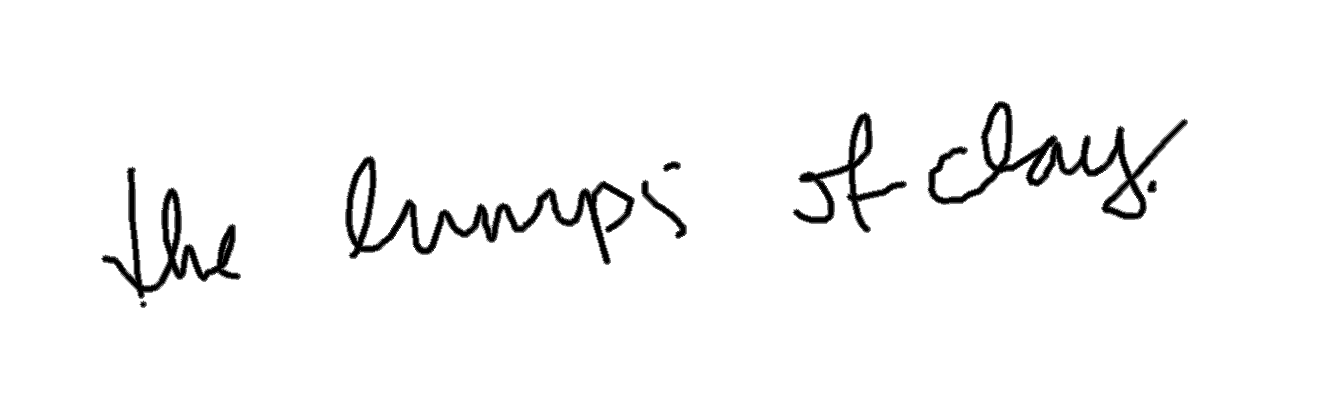 the lumps of clay.